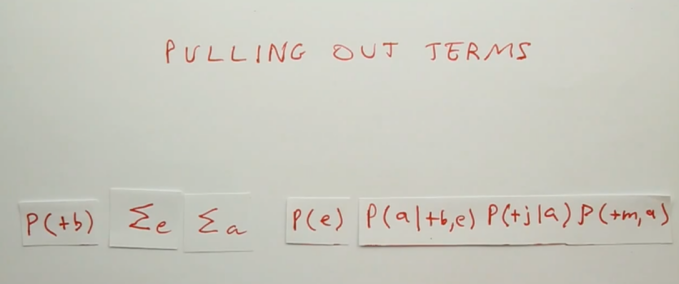 PULLING OUT TERMS
P(+b) Σe Σa P(e) P(a|+b,e) P(+j|a) P(+m,a)